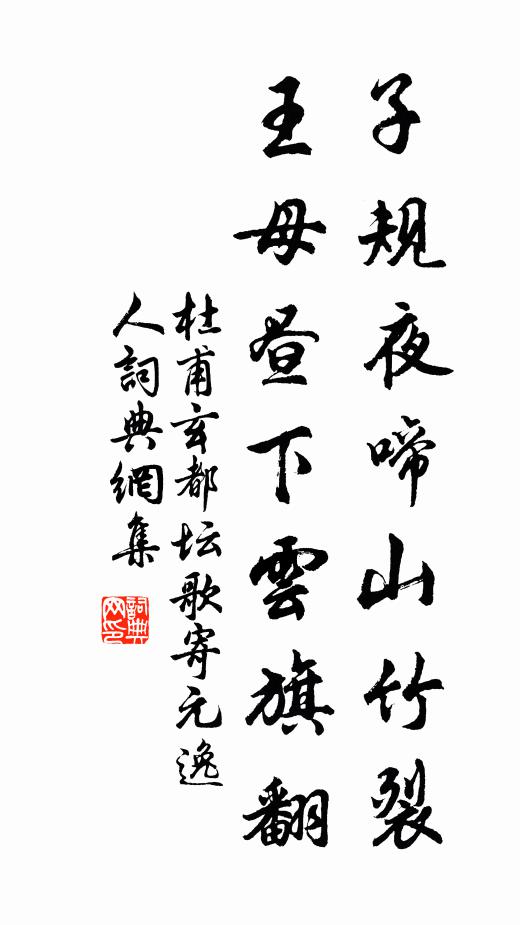 子規夜啼山竹裂
王母昼下雲旗翻
杜甫玄都坛歌寄元逸
人詞典網集
詞典网印